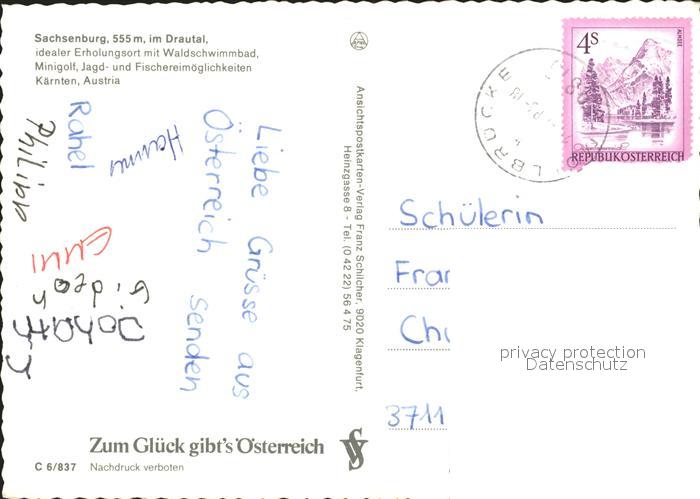 Sachsenburg, 555 m, im Drautal,
idealer Erholungsort mit Waldschwimmbad,
Minigolf, Jagd- und Fischereimöglichkeiten
Kärnten, Austria
Liebe Grüsse aus
Österreich senden
Hannes
Rahel
Philipp
Emmi
Gideon
Ansichtspostkarten-Verlag Franz Schilcher, 9020 Klagenfurt,
Heinzgasse 8 - Tel. (0 42 22) 56 4 75
4S
ALMSEE
REPUBLIK ÖSTERREICH
Schülerin
Fra
Ch
3711
privacy protection
Datenschutz
Zum Glück gibt's Österreich
C 6/837 Nachdruck verboten